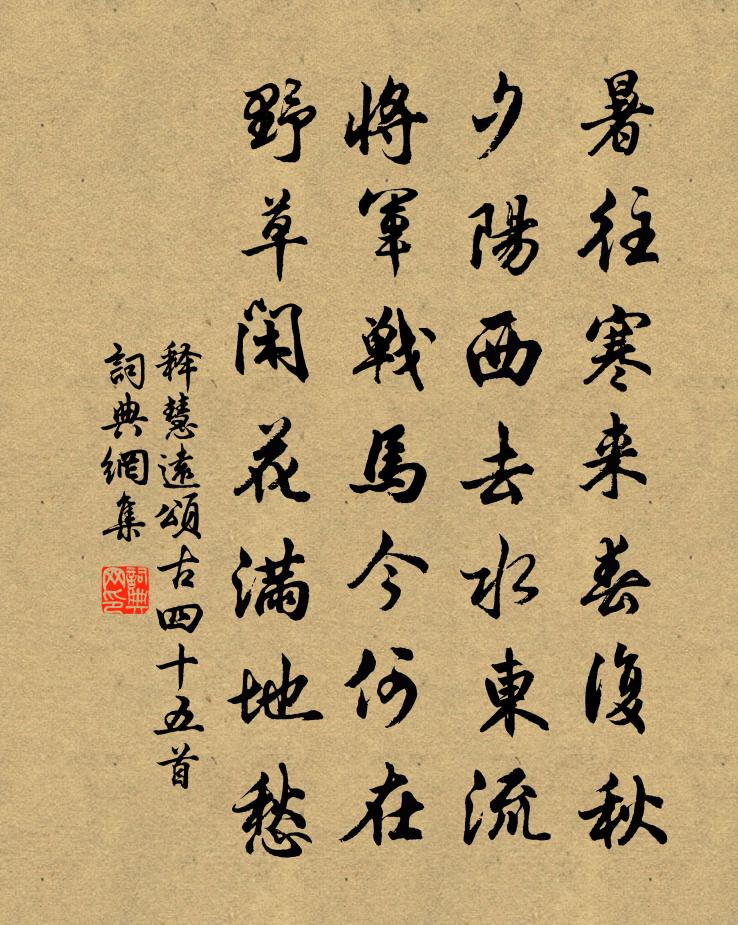 暑往寒来春復秋
夕陽西去水東流
將軍戰馬今何在
野草閑花滿地愁
释慧遠頌古四十五首
詞典網集
詞典网印